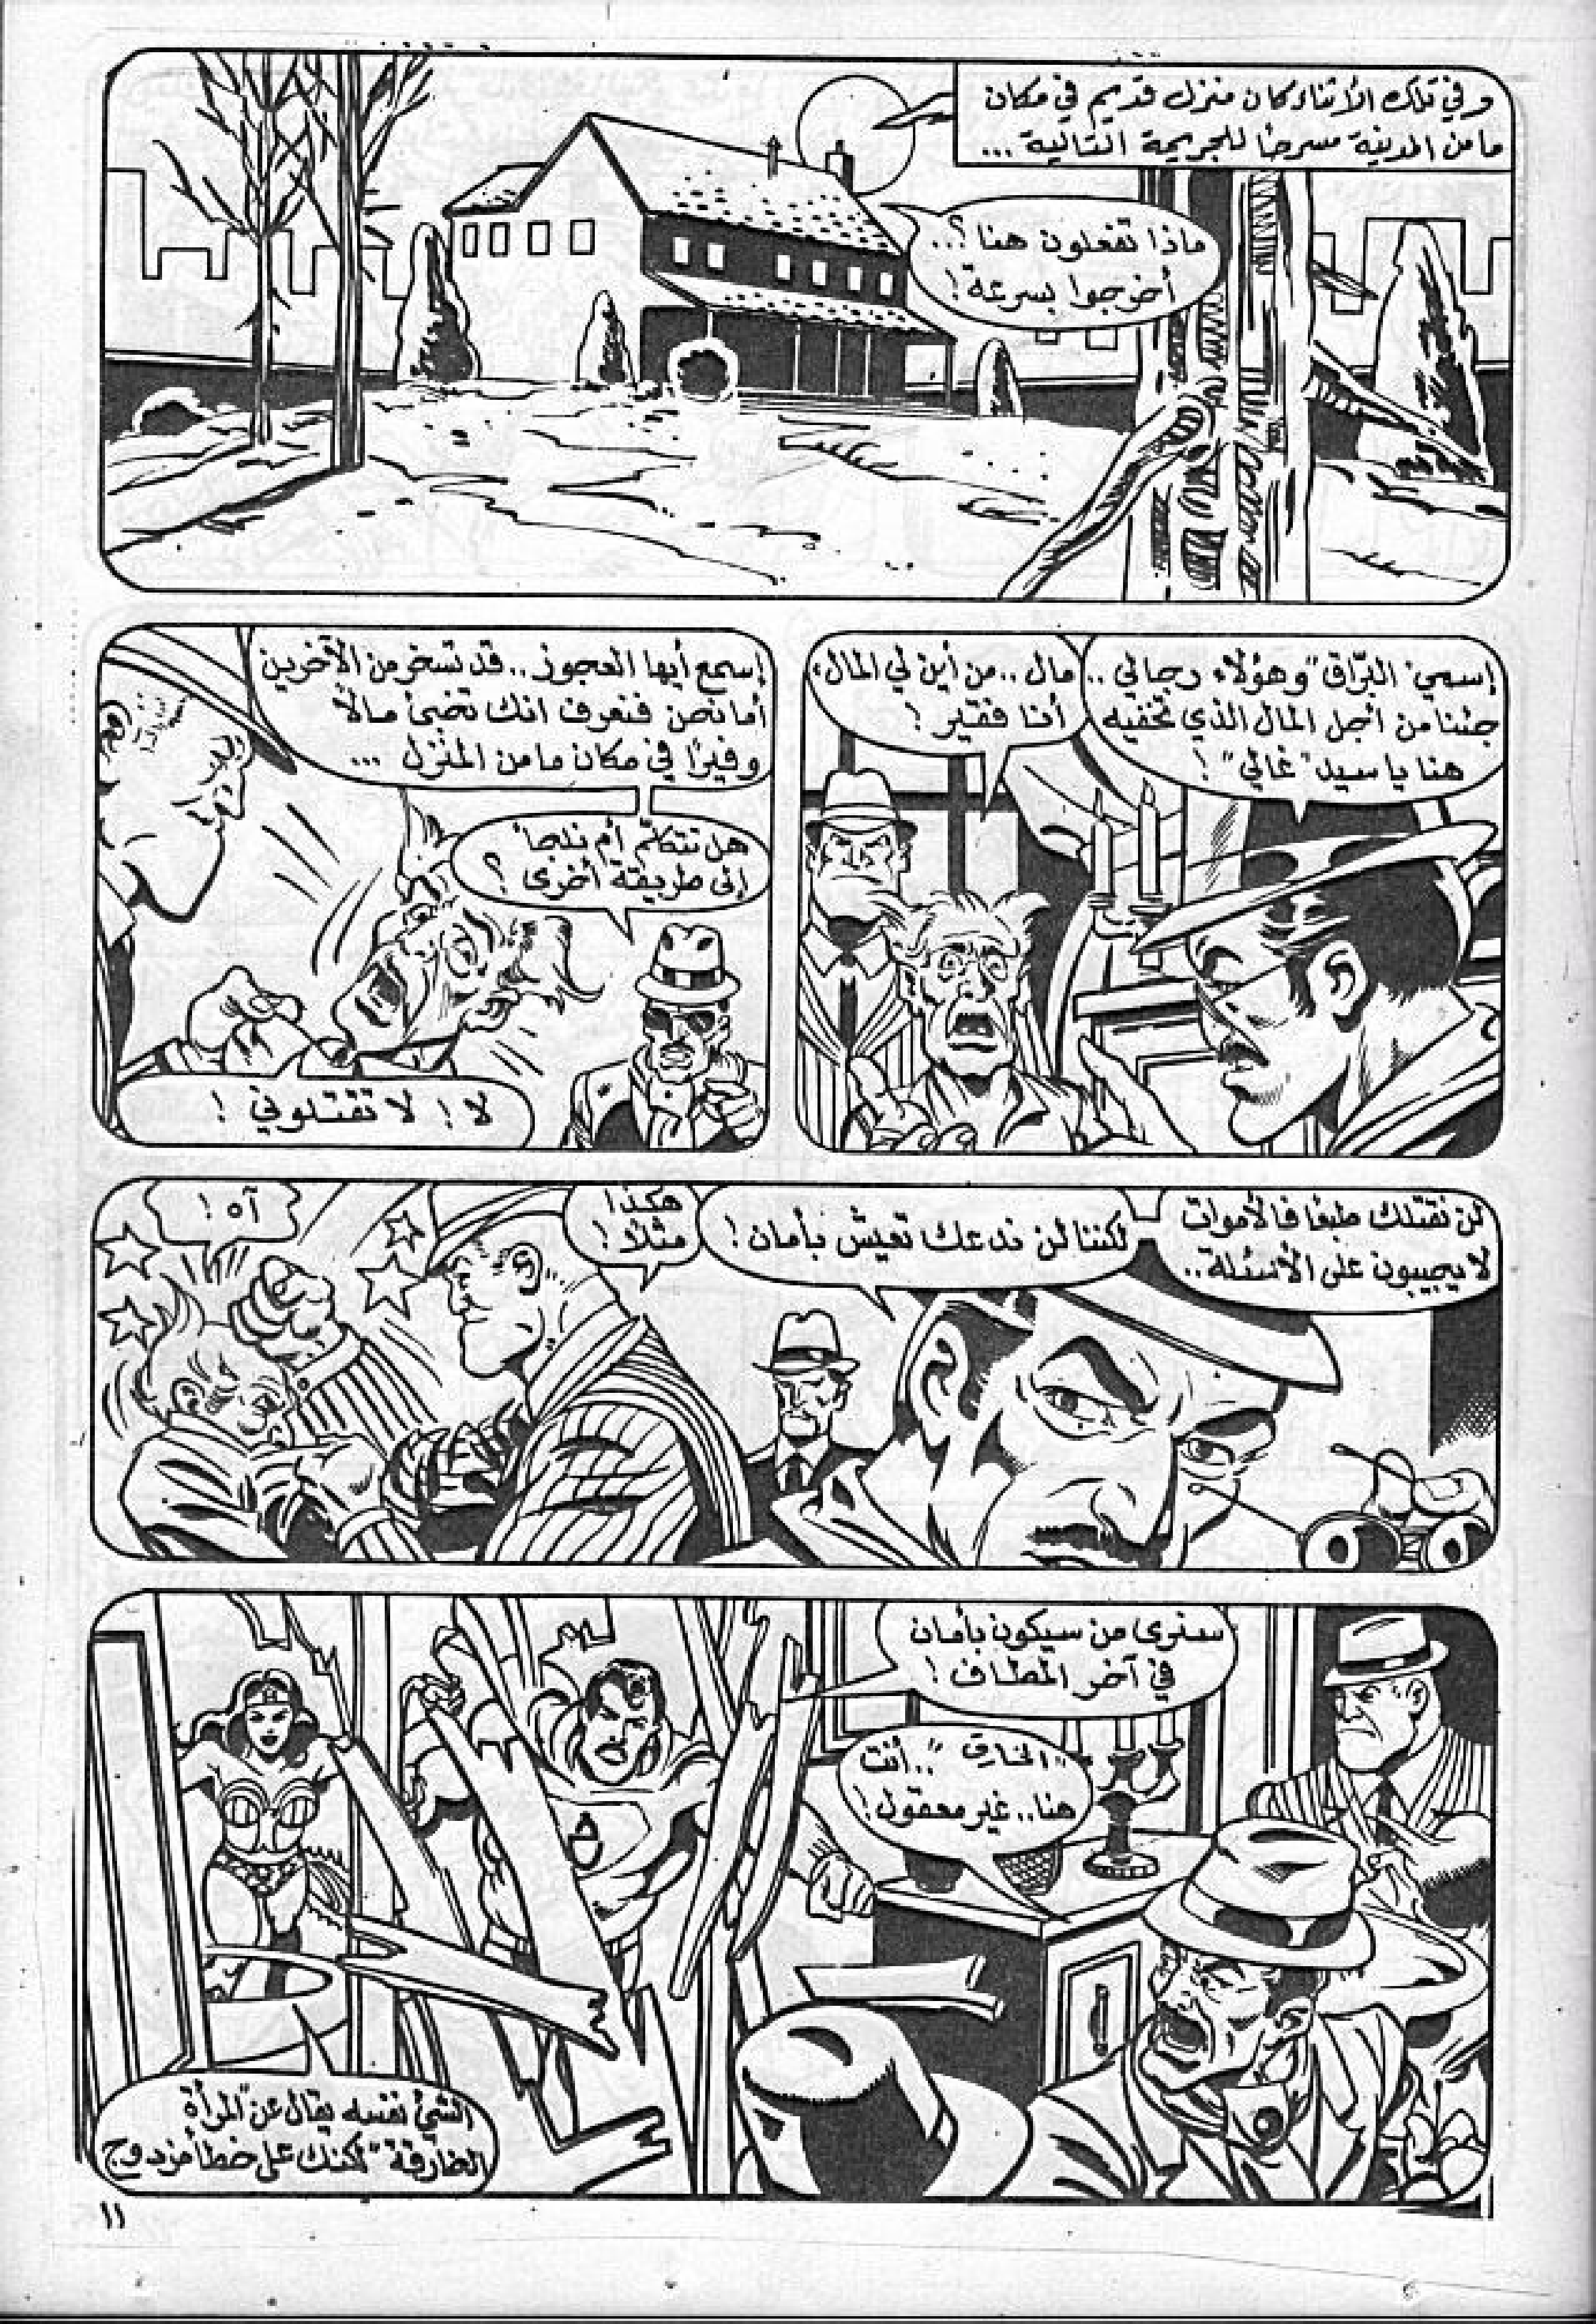 وفي تلك الأثناء كان منزل قديم في مكان
ما من المدينة مسرحًا للجريمة التالية ...
ماذا تفعلون هنا؟..
أخرجوا بسرعة!
إسمي "البرّاق" وهؤلاء رجالي ..
جئنا من أجل المال الذي تخفيه
هنا يا سيد "غالي"!
مال .. من أين لي المال،
أنا فقير!
إسمع أيها العجوز .. قد تسخر من الآخرين
أما نحن فنعرف انك تخبئ مالاً
وفيرًا في مكان ما من المنزل ...
هل تتكلّم أم نلجأ
إلى طريقة أخرى؟
لا! لا تقتلوني!
لن نقتلك طبعًا فالأموات
لا يجيبون على الأسئلة ..
لكننا لن ندعك تعيش بأمان!
هكذا
مثلاً!
آه!
سنرى من سيكون بأمان
في آخر المطاف!
"الخارق" .. أنت
هنا .. غير معقول!
الشيئ نفسه يقال عن "المرأة
الخارقة" لكنك على خطأ مزدوج
١١